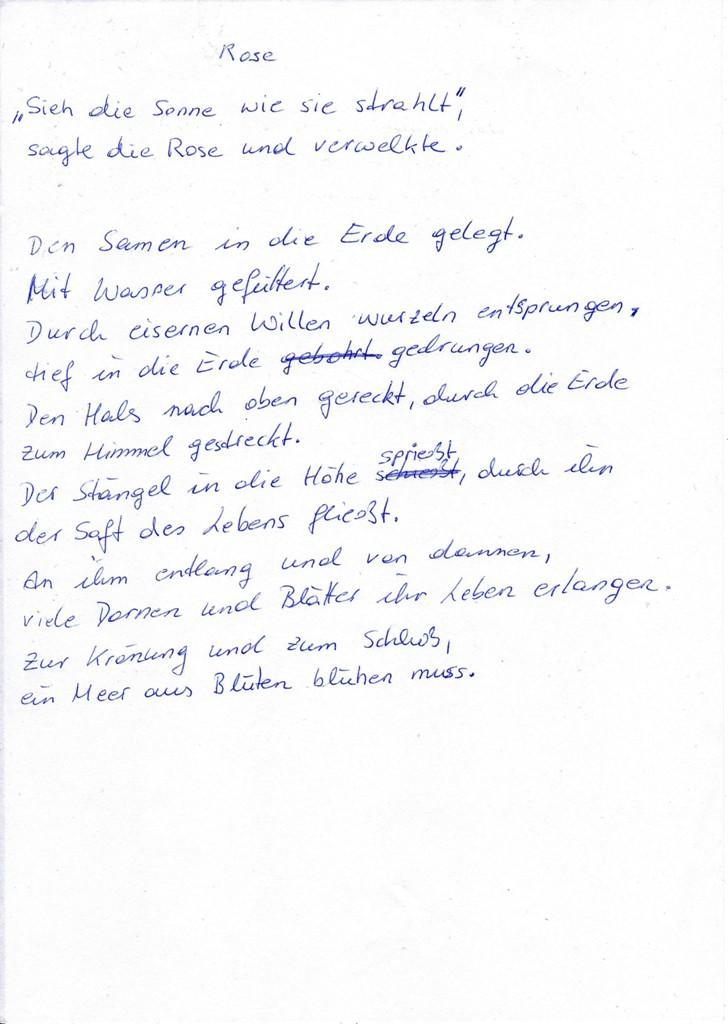 Rose
„Sieh die Sonne wie sie strahlt",
sagte die Rose und verwelkte.
Den Samen in die Erde gelegt.
Mit Wasser gefüttert.
Durch eisernen Willen wurzeln entsprungen,
tief in die Erde gebohrt. gedrungen.
Den Hals nach oben gereckt, durch die Erde
zum Himmel gestreckt.
spriest,
Der Stängel in die Höhe schiesst, durch ihn
der Saft des Lebens fließt.
An ihm entlang und von dannen,
viele Dornen und Blätter ihr Leben erlangen.
Zur Krönung und zum Schluß,
ein Meer aus Blüten blühen muss.